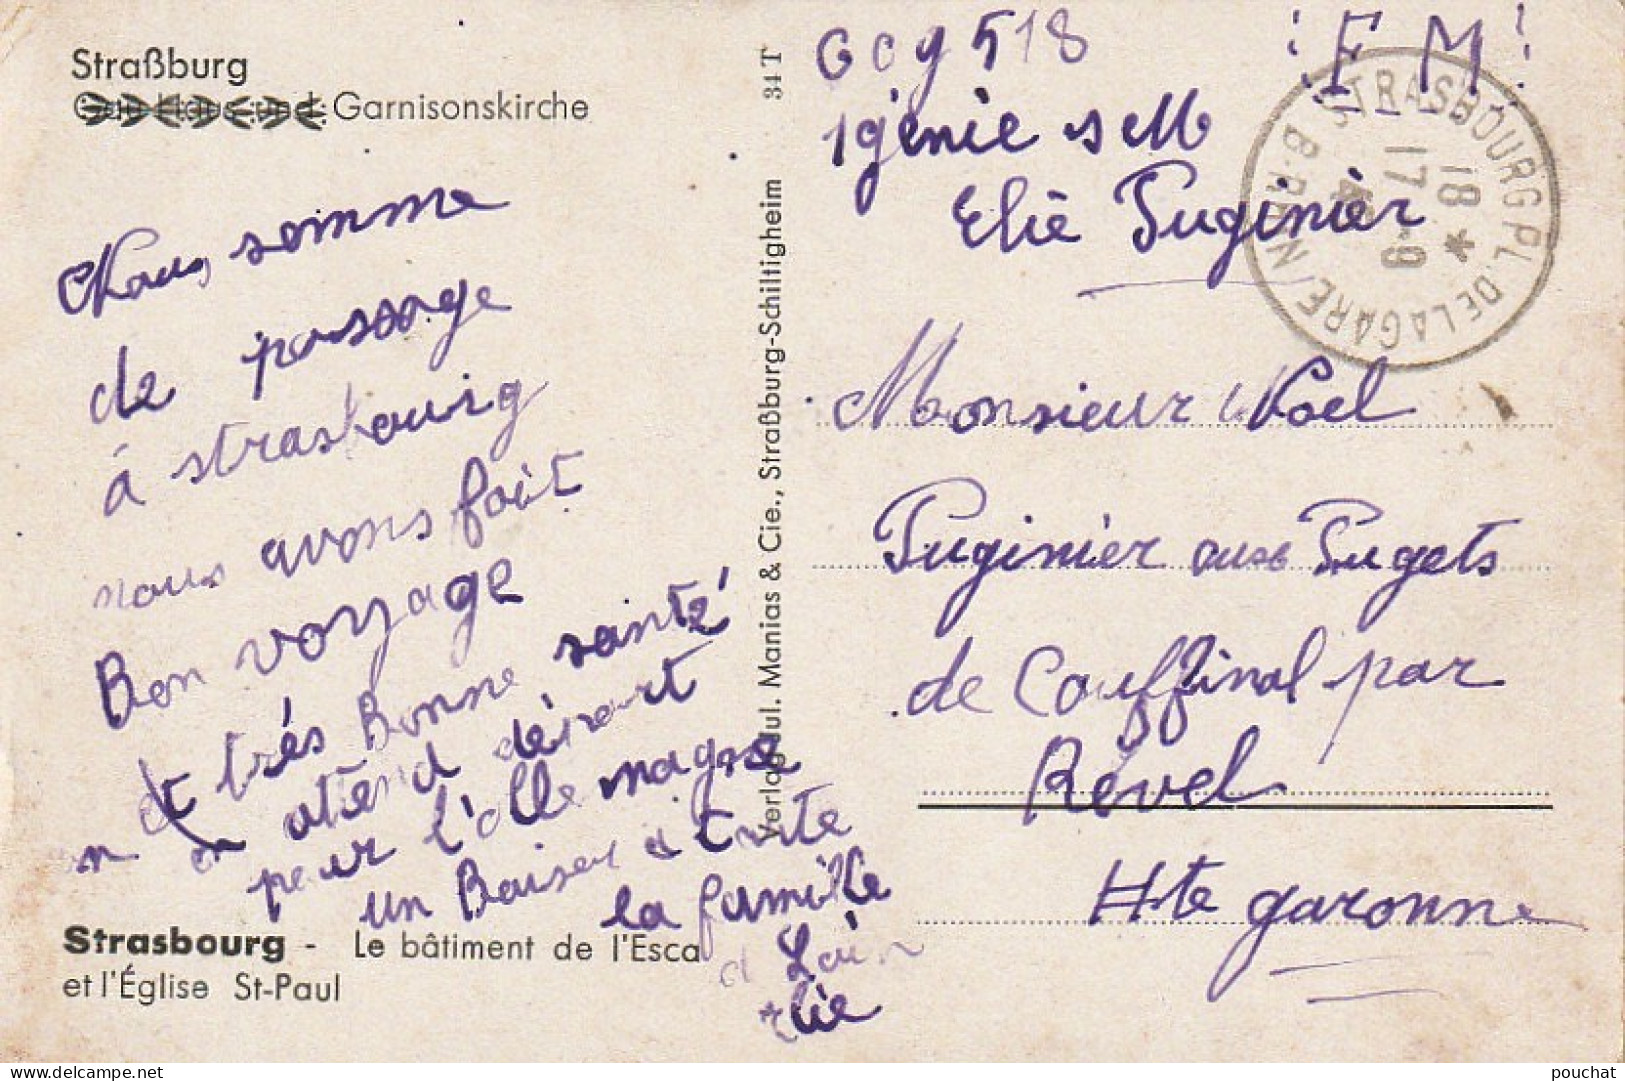 Straßburg
Gau-Haus und Garnisonskirche
Nous somme
de passage
á strasbourig
nous avons fait
Bon voyage
et trés Bonne santé
on atend départ
pour l'alle magne
un Baiser a toute
la famille
Elie
Strasbourg - Le bâtiment de l'Esca
et l'Église St-Paul
Verlag Jul. Manias & Cie., Straßburg-Schiltigheim 34 T
518
F M
1 génie
Elie Puginier
STRASBOURG PL. DE LA GARE
B-RHIN
18 *
17-9
Monsieur Noel
Puginier aux Pugets
de Couffinal par
Révél
Hte garonne
delcampe.net
pouchat